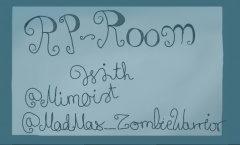 RP-Room
With
@Mimoist
@MadMax_ZombieWarrior